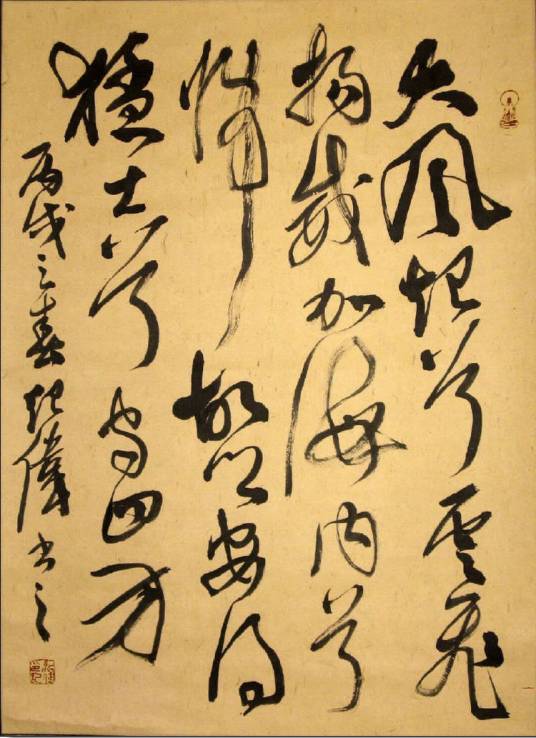 大風起兮雲飛
揚威加海内兮
歸故鄉安得
猛士兮守四方
丙戌之春偉書之